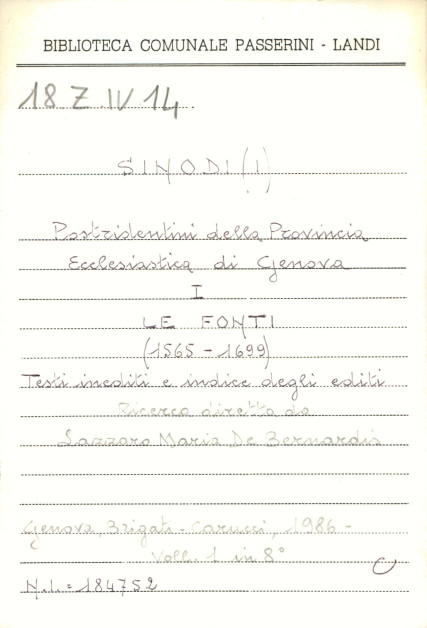 BIBLIOTECA COMUNALE PASSERINI - LANDI
18 Z IV 14
SINODI (I)
Postridentini della Provincia
Ecclesiastica di Genova
I
LE FONTI
(1565 - 1699)
Testi inediti e indice degli editi
Ricerca diretta da
Lazzaro Maria De Bernardis
Genova, Brigati - Carucci, 1986 -
Voll. 1 in 8°
N.I. = 184752